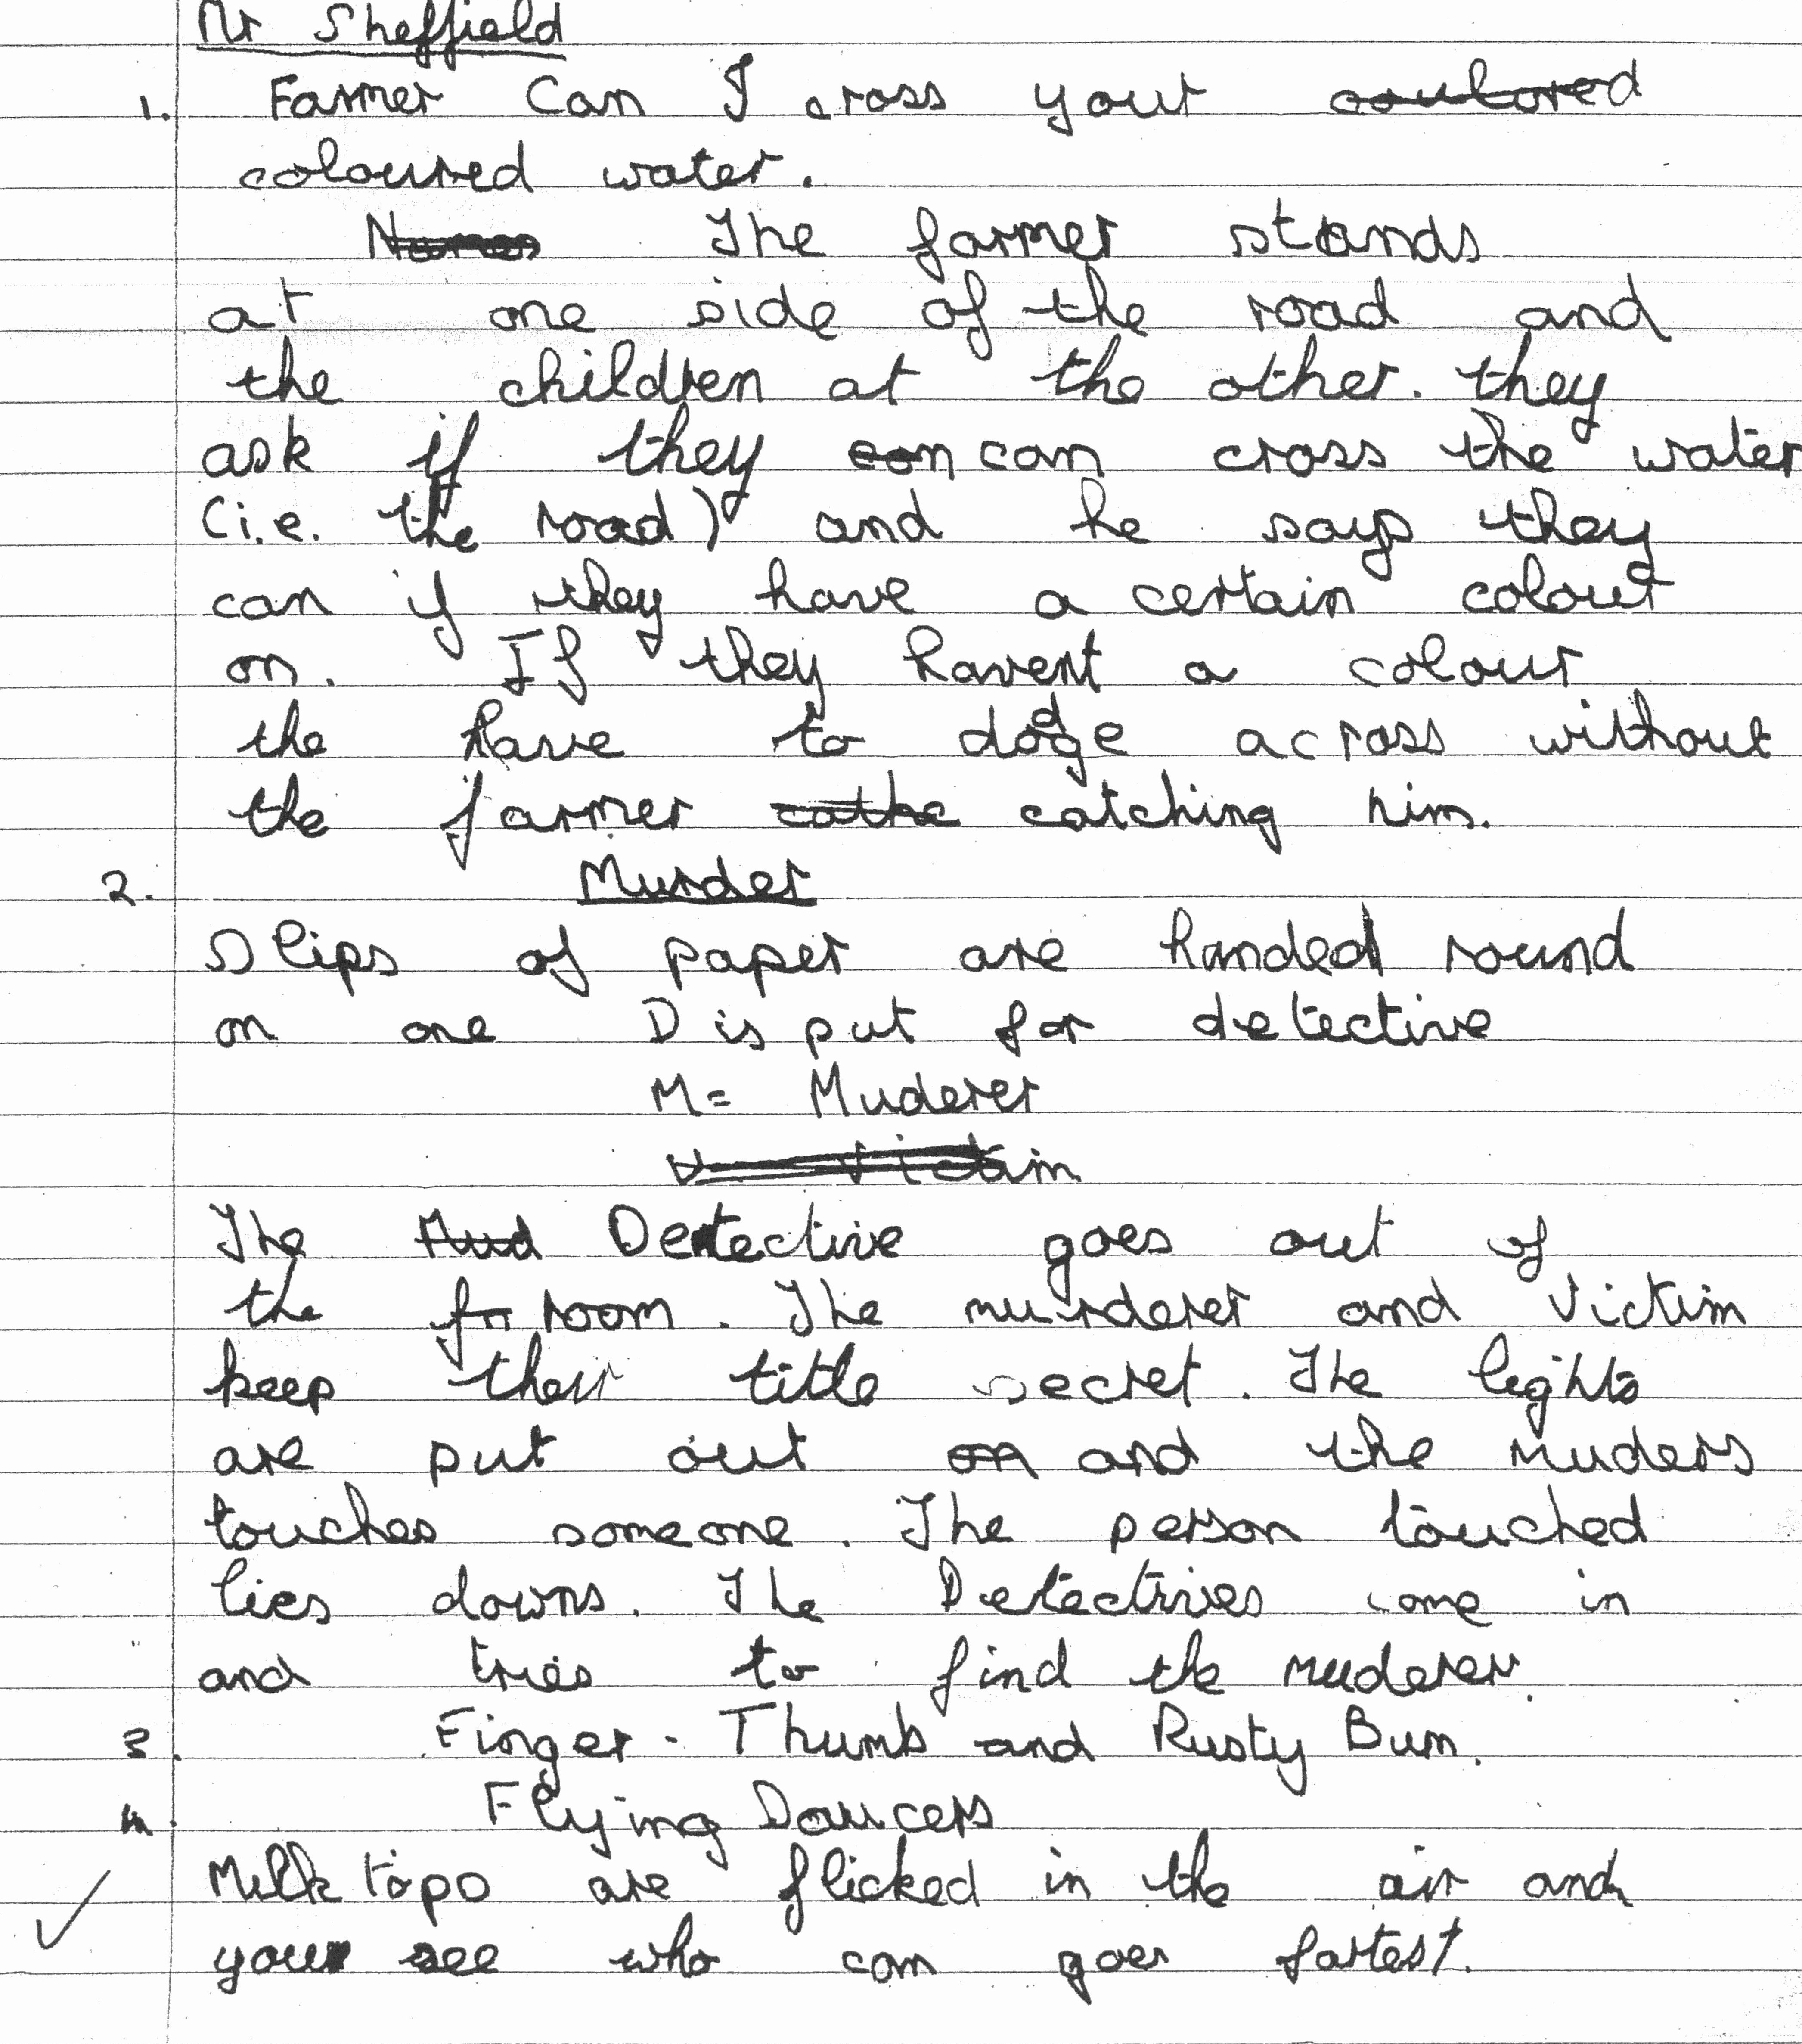 Mr Sheffield
1. Farmer Can I cross your coulored
coloured water.
The farmer stands
at one side of the road and
the children at the other. they
ask if they can can cross the water
(i.e. the road) and he says they
can if they have a certain colour
on. If they havent a colour
the have to dodge across without
the farmer cathe catching him.
2. Murder
Slips of paper are handed round
on one D is put for detective
M= Muderer
V Victim
The Mud Detective goes out of
the fr room. The murderer and Victim
keep their title secret. The lights
are put out on and the muders
touches someone. The person touched
lies downs. The Detectives come in
and tries to find the muderer.
3. Finger - Thumb and Rusty Bum.
4. Flying Saucers
Milk tops are flicked in the air and
your see who can goes fastest.